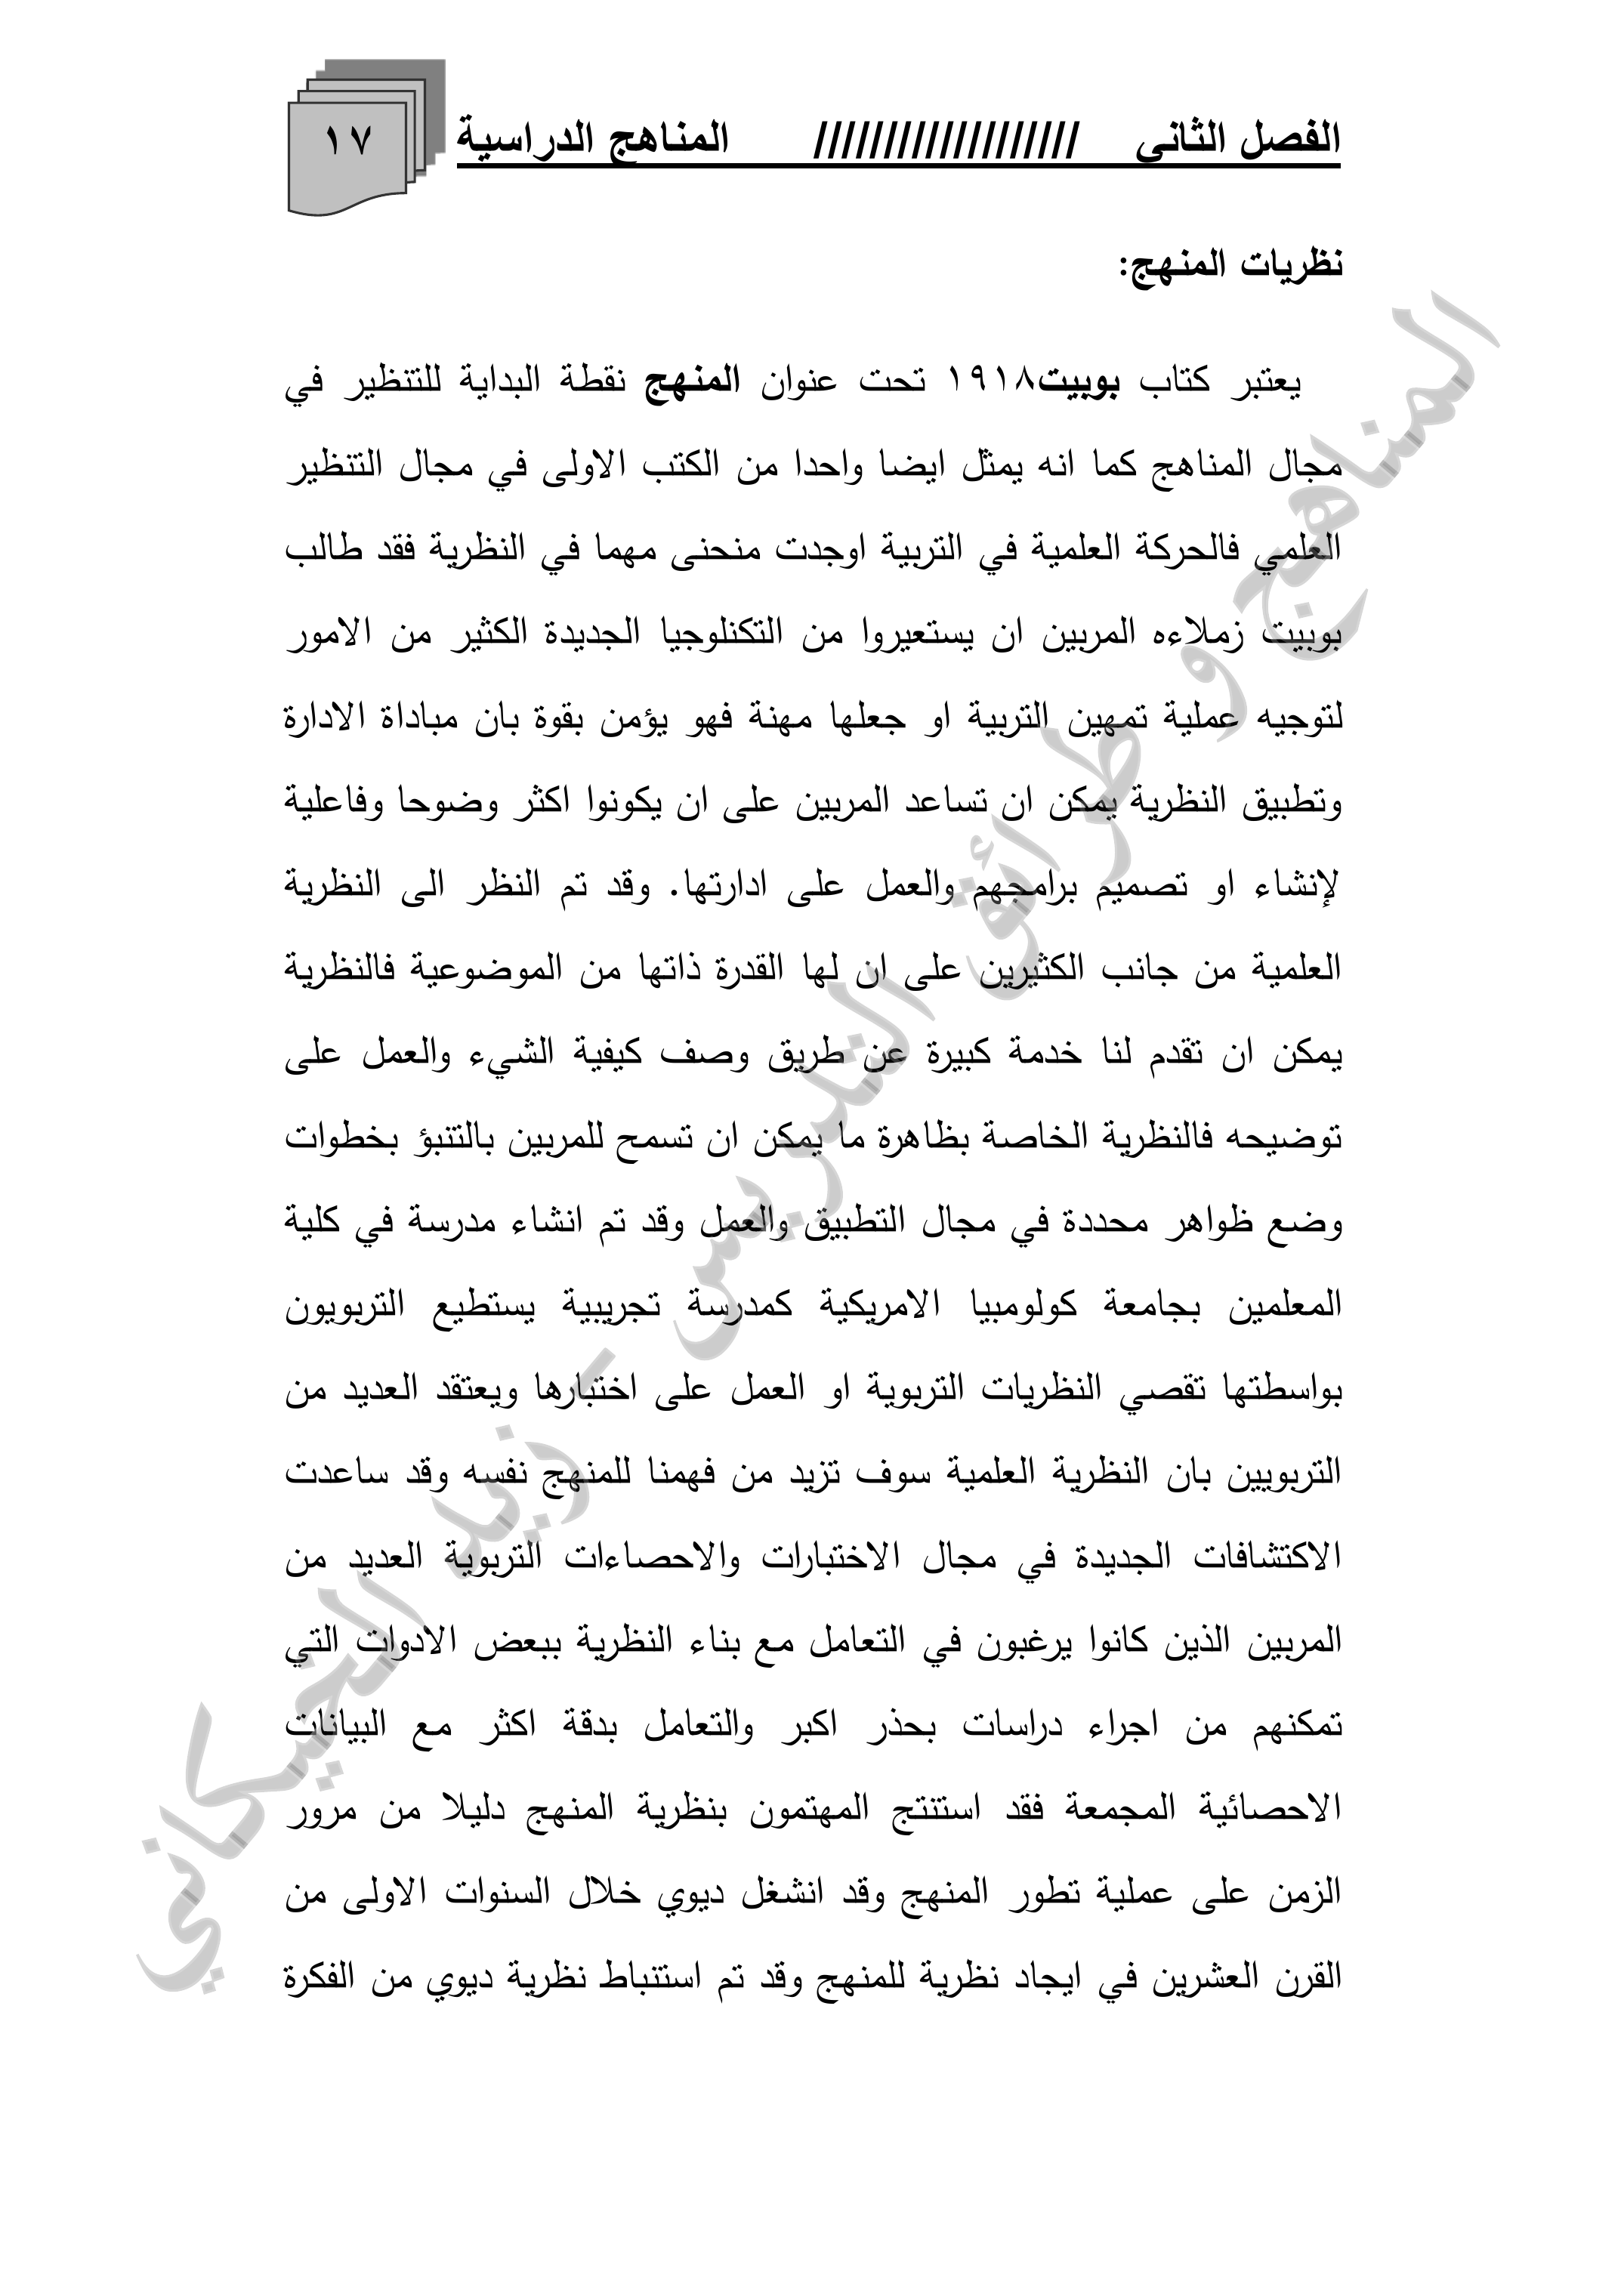 الفصل الثاني /////////////////// المناهج الدراسية ١٧
نظريات المنهج:
يعتبر كتاب بوبيت١٩١٨ تحت عنوان المنهج نقطة البداية للتنظير في
مجال المناهج كما انه يمثل ايضا واحدا من الكتب الاولى في مجال التنظير
العلمي فالحركة العلمية في التربية اوجدت منحنى مهما في النظرية فقد طالب
بوبيت زملاءه المربين ان يستعيروا من التكنلوجيا الجديدة الكثير من الامور
لتوجيه عملية تمهين التربية او جعلها مهنة فهو يؤمن بقوة بان مباداة الادارة
وتطبيق النظرية يمكن ان تساعد المربين على ان يكونوا اكثر وضوحا وفاعلية
لإنشاء او تصميم برامجهم والعمل على ادارتها. وقد تم النظر الى النظرية
العلمية من جانب الكثيرين على ان لها القدرة ذاتها من الموضوعية فالنظرية
يمكن ان تقدم لنا خدمة كبيرة عن طريق وصف كيفية الشيء والعمل على
توضيحه فالنظرية الخاصة بظاهرة ما يمكن ان تسمح للمربين بالتنبؤ بخطوات
وضع ظواهر محددة في مجال التطبيق والعمل وقد تم انشاء مدرسة في كلية
المعلمين بجامعة كولومبيا الامريكية كمدرسة تجريبية يستطيع التربويون
بواسطتها تقصي النظريات التربوية او العمل على اختبارها ويعتقد العديد من
التربويين بان النظرية العلمية سوف تزيد من فهمنا للمنهج نفسه وقد ساعدت
الاكتشافات الجديدة في مجال الاختبارات والاحصاءات التربوية العديد من
المربين الذين كانوا يرغبون في التعامل مع بناء النظرية ببعض الادوات التي
تمكنهم من اجراء دراسات بحذر اكبر والتعامل بدقة اكثر مع البيانات
الاحصائية المجمعة فقد استنتج المهتمون بنظرية المنهج دليلا من مرور
الزمن على عملية تطور المنهج وقد انشغل ديوي خلال السنوات الاولى من
القرن العشرين في ايجاد نظرية للمنهج وقد تم استنباط نظرية ديوي من الفكرة
المناهج و طرائق التدريس - زيد الخيكاني